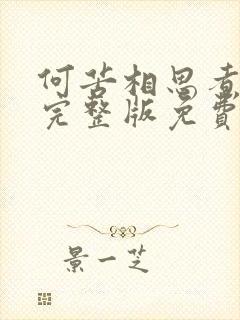 何苦相思煮
完整版免費
景一芝